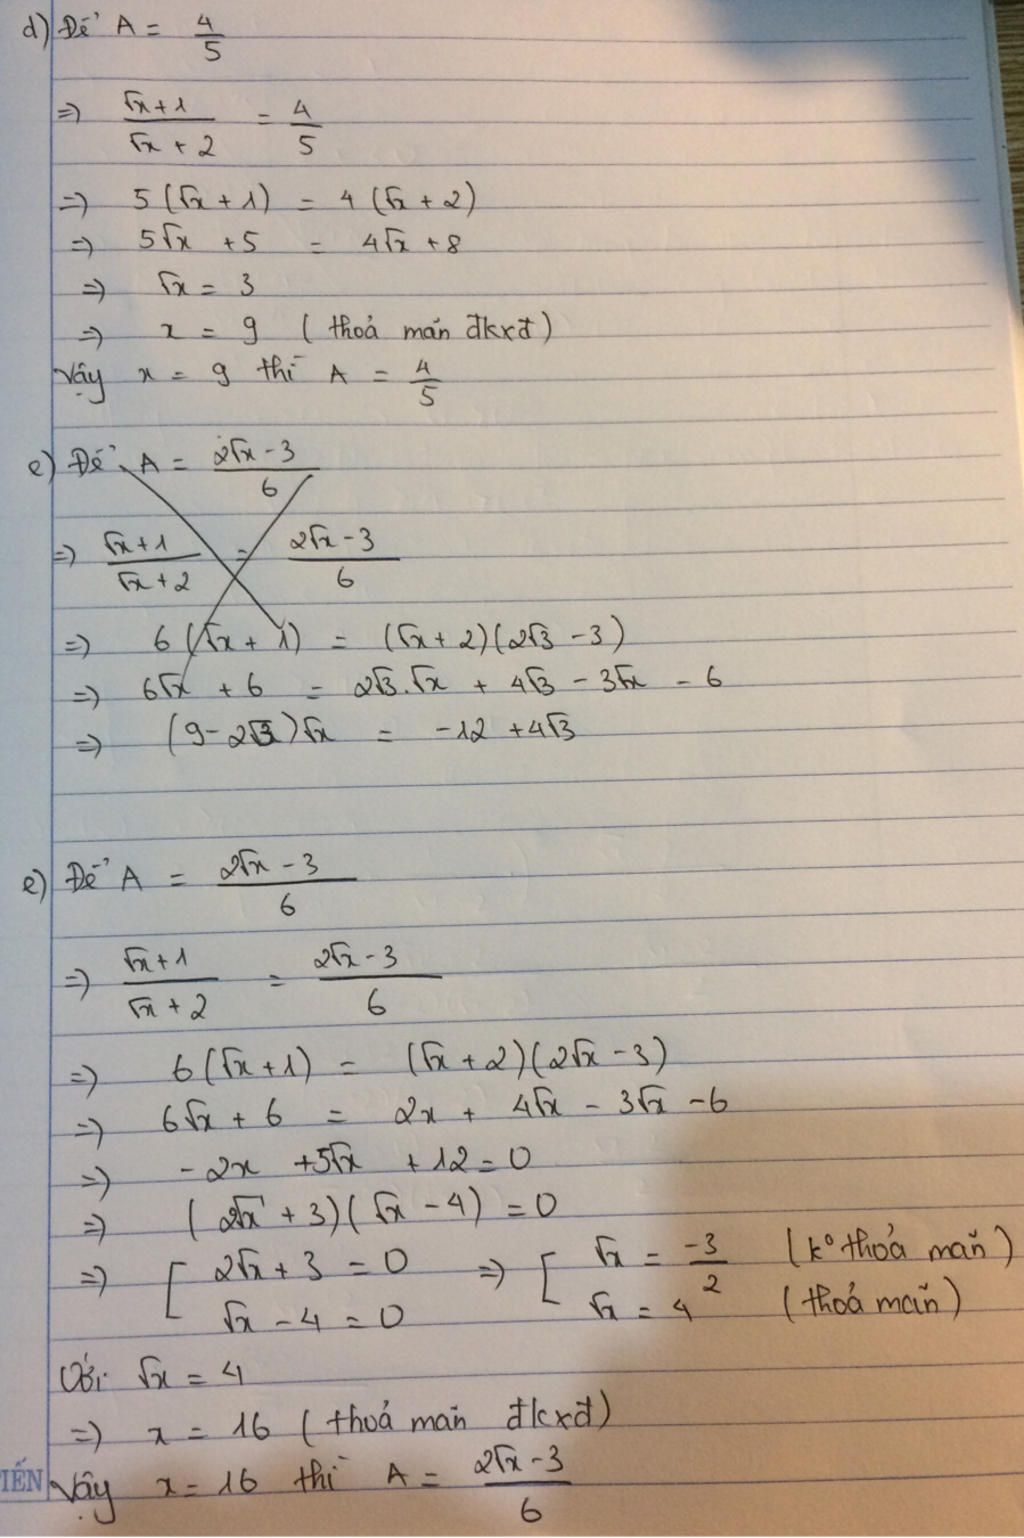 d) Để A = 4/5
=> (√x+1)/(√x + 2) = 4/5
=> 5(√x + 1) = 4(√x + 2)
=> 5√x + 5 = 4√x + 8
=> √x = 3
=> x = 9 (thoả mãn đkxđ)
Vậy x = 9 thì A = 4/5
e) Để A = (2√x - 3)/6
=> (√x+1)/(√x+2) = (2√x - 3)/6
=> 6(√x + 1) = (√x+2)(2√3 - 3)
=> 6√x + 6 = 2√3.√x + 4√3 - 3√x - 6
=> (9-2√3)√x = -12 + 4√3
e) Để A = (2√x - 3)/6
=> (√x+1)/(√x + 2) = (2√x - 3)/6
=> 6(√x+1) = (√x + 2)(2√x - 3)
=> 6√x + 6 = 2x + 4√x - 3√x - 6
=> -2x + 5√x + 12 = 0
=> (2√x + 3)(√x - 4) = 0
=> [ 2√x + 3 = 0 => [ √x = -3/2 (k° thoả mãn)
√x - 4 = 0 √x = 4 (thoả mãn)
Với √x = 4
=> x = 16 (thoả mãn đkxđ)
Vậy x = 16 thì A = (2√x - 3)/6
TIẾN